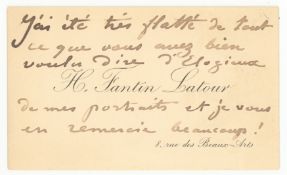 J'ai été très flatté de tout
ce que vous avez bien
voulu dire d'Elogieux
H. Fantin Latour
de mes portraits et je vous
en remercie beaucoup!
8, rue des Beaux-Arts